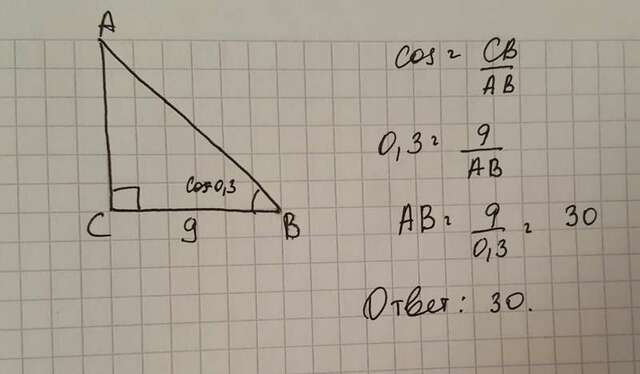 A
cos 0,3
C
9
B
cos = CB/AB
0,3 = 9/AB
AB = 9/0,3 = 30
Ответ: 30.